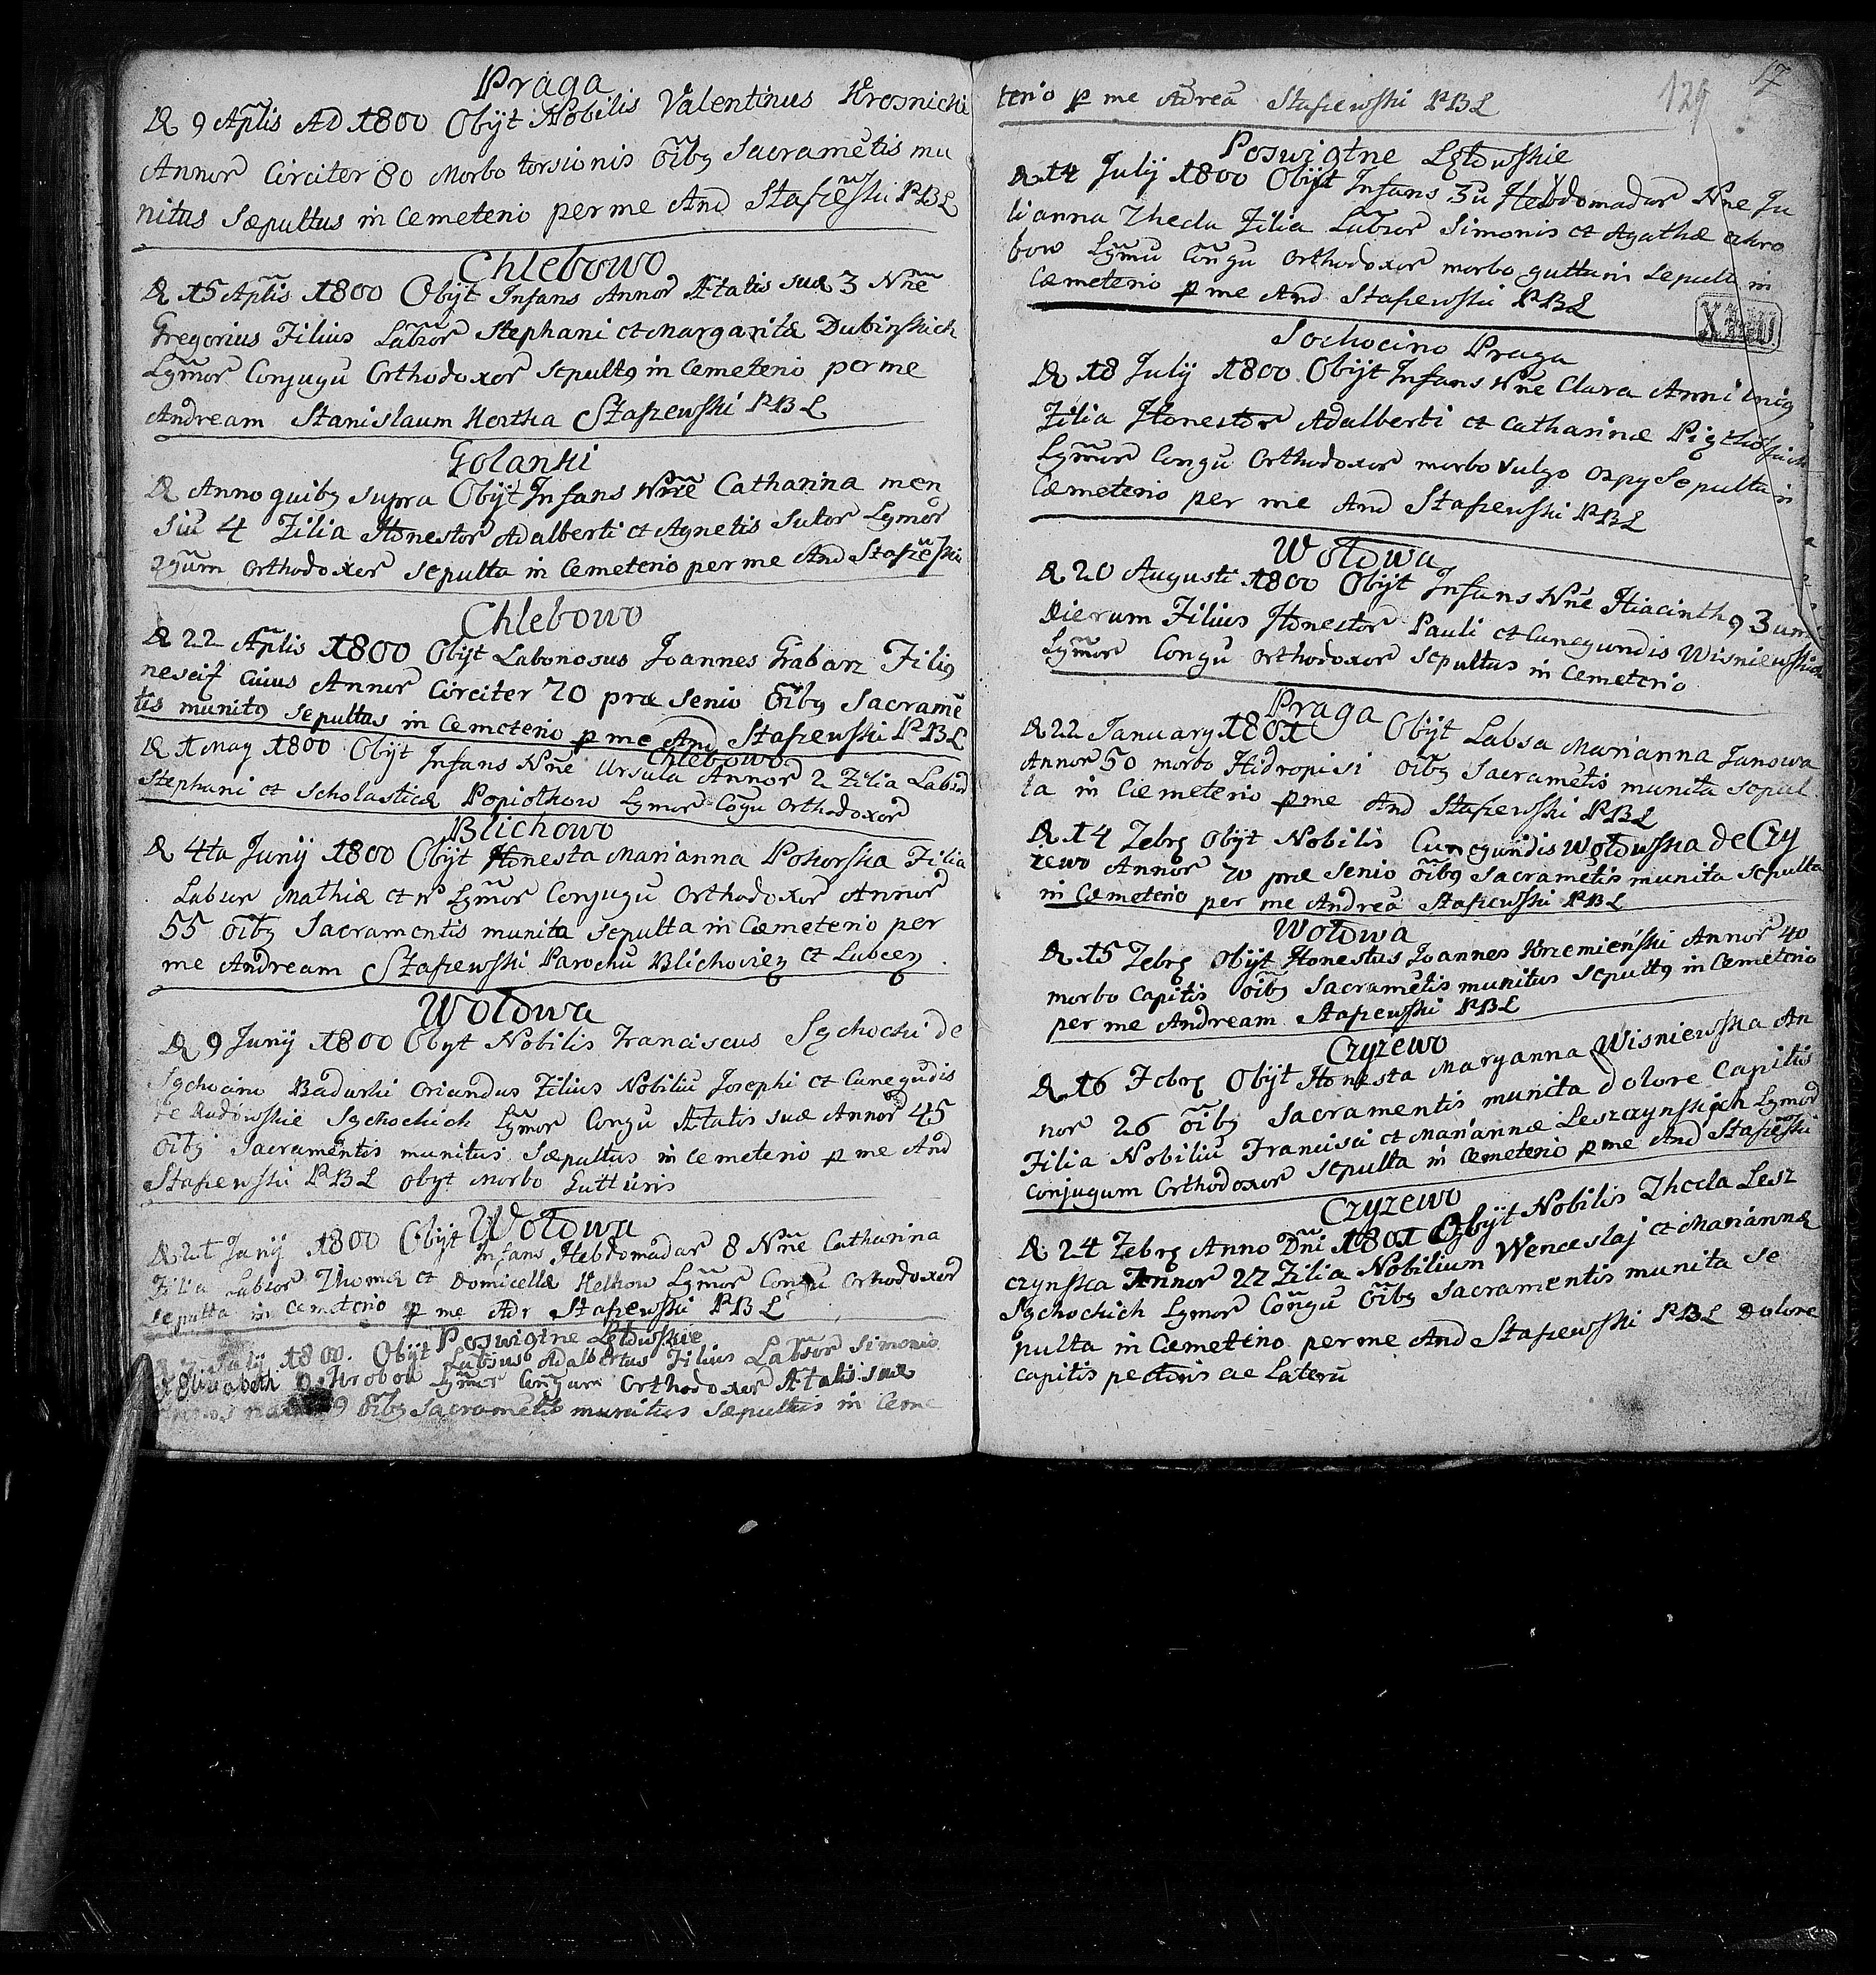 Praga
D 9 Aplis AD 1800 Obijt Nobilis Valentinus Krosnicki
Annor Circiter 80 Morbo torsionis õibg Sacrametis mu
nitus Sæpultus in Cemeterio per me And Stasiewski PBL
Chlebowo
D 15 Aplis 1800 Obijt Infans Annor Ætatis suæ 3 Nñe
Gregorius Filius Labzor Stephani et Margaritæ Dubinskich
Lgmor Conjugu Orthodoxor Sepultg in Cemeterio per me
Andream Stanislaum Kostka Stasiewski PBL
Golanki
D Anno quibg supra Obijt Infans Nñe Catharina men
siu 4 Filia Honestor Adalberti et Agnetis Sutor Lgmor
egum orthodoxor sepulta in Cemeterio per me And Stasiewski
Chlebowo
D 22 Aplis 1800 Obijt Laboriosus Joannes Grabarz Filig
nescit cuius Annor Circiter 70 præ senio õibg Sacramẽ
tis munitg sepultus in Cemeterio p me And Stasiewski PBL
Chlebowo
D 1 May 1800 Obijt Infans Nñe Ursula Annor 2 Filia Labzor
Stephani et Scholasticæ Popiołkow Lgmor Cõgu Orthodoxor
Blichowo
D 4ta Junij 1800 Obijt Honesta Marianna Pokorska Filia
Labzor Mathiæ et n Lgmor Conjugu Orthodoxor Annor
55 õibg Sacramentis munita sepulta in Cæmeterio per
me Andream Stasiewski Parochu Blichovien et Lubeen
Wołowa
D 9 Junij 1800 Obijt Nobilis Franciscus Sychocki de
Sychocino Badurki Oriundus Filius Nobiliu Josephi et Cunegudis
de Rudowskie Sychockich Lgmor Congu Ætatis suæ Annor 45
Oibg Sacramentis munitus Sæpultus in Cemeterio p me And
Stasiewski PBL obijt Morbo Gutturis
Wołowa
D 21 Junij 1800 Obijt Infans Hebdomadar 8 Nñe Catharina
Filia Labzor Thomæ et Domicellæ Helkow Lgmor Congu Orthodoxor
sepulta in Cemeterio p me Adr Stasiewski PBL
Poswigtne Lętowskie
July 1800. Obijt Labsus Adalbertus Filius Labzor Simonis
Elizabeth Krobow Lgmor Congum Orthodoxor Ætatis suæ
9 õibg Sacrametis munitus Sæpultus in Ceme
17
129
terio p me Adrea Stasiewski PBL
Poswigtne Lętowskie
D 14 July 1800 Obijt Infans 3u Hebdomadar Nñe Ju
lianna Thecla Filia Labzor Simonis et Agathæ akro
bow Lgmu Congu Orthodoxor morbo gutturis sepulta in
Cæmeterio p me And Stasiewski PBL
Sochocino Praga
D 18 July 1800 Obijt Infans Nñe Clara Anni unig
Filia Honestor Adalberti et Catharinæ Pigtkoskich
Lgmor Congu Orthodoxor morbo vulgo ospy Sepulta in
Cæmeterio per me And Stasiewski PBL
Wołowa
D 20 Augusti 1800 Obijt Infans Nñe Hiacinthg 3 um
Dierum Filius Honestor Pauli et Cunegundis Wisniewskich
Lgmor Congu Orthodoxor Sepultus in Cemeterio
Praga
D 22 January 1801 Obijt Labsa Marianna Janowa
Annor 50 morbo Hidropisi Oibg Sacrametis munita sepul
ta in Cæmeterio p me And Stasiewski PBL
D 14 Febrg Obijt Nobilis Cunegundis Wołowska de Czy
zewo Annor 70 præ Senio õibg Sacrametis munita sepulta
in Cæmeterio per me Andreã Stasiewski PBL
Wołowa
D 15 Febrg Obijt Honestus Joannes Krzemieński Annor 40
morbo Capitis Oibg Sacrametis munitus sepultg in Cemeterio
per me Andream Stasiewski PBL
Czyzewo
D 16 Febrg Obijt Honesta Maryanna Wisniewska An
nor 26 õibg Sacramentis munita dolore Capitis
Filia Nobiliu Francisci et Mariannæ Leszczynskich Lgmor
Conjugum Orthodoxor sepulta in Cemeterio p me And Stasiewski
Czyzewo
D 24 Febrg Anno Dñi 1801 Obijt Nobilis Thecla Lesz
czynska Annor 22 Filia Nobilium Wenceslaj et Mariannæ
Sychockich Lgmor Congu Õibg Sacramentis munita Se
pulta in Cæmeterio per me And Stasiewski PBL Dolore
capitis pectoris ac Lateru